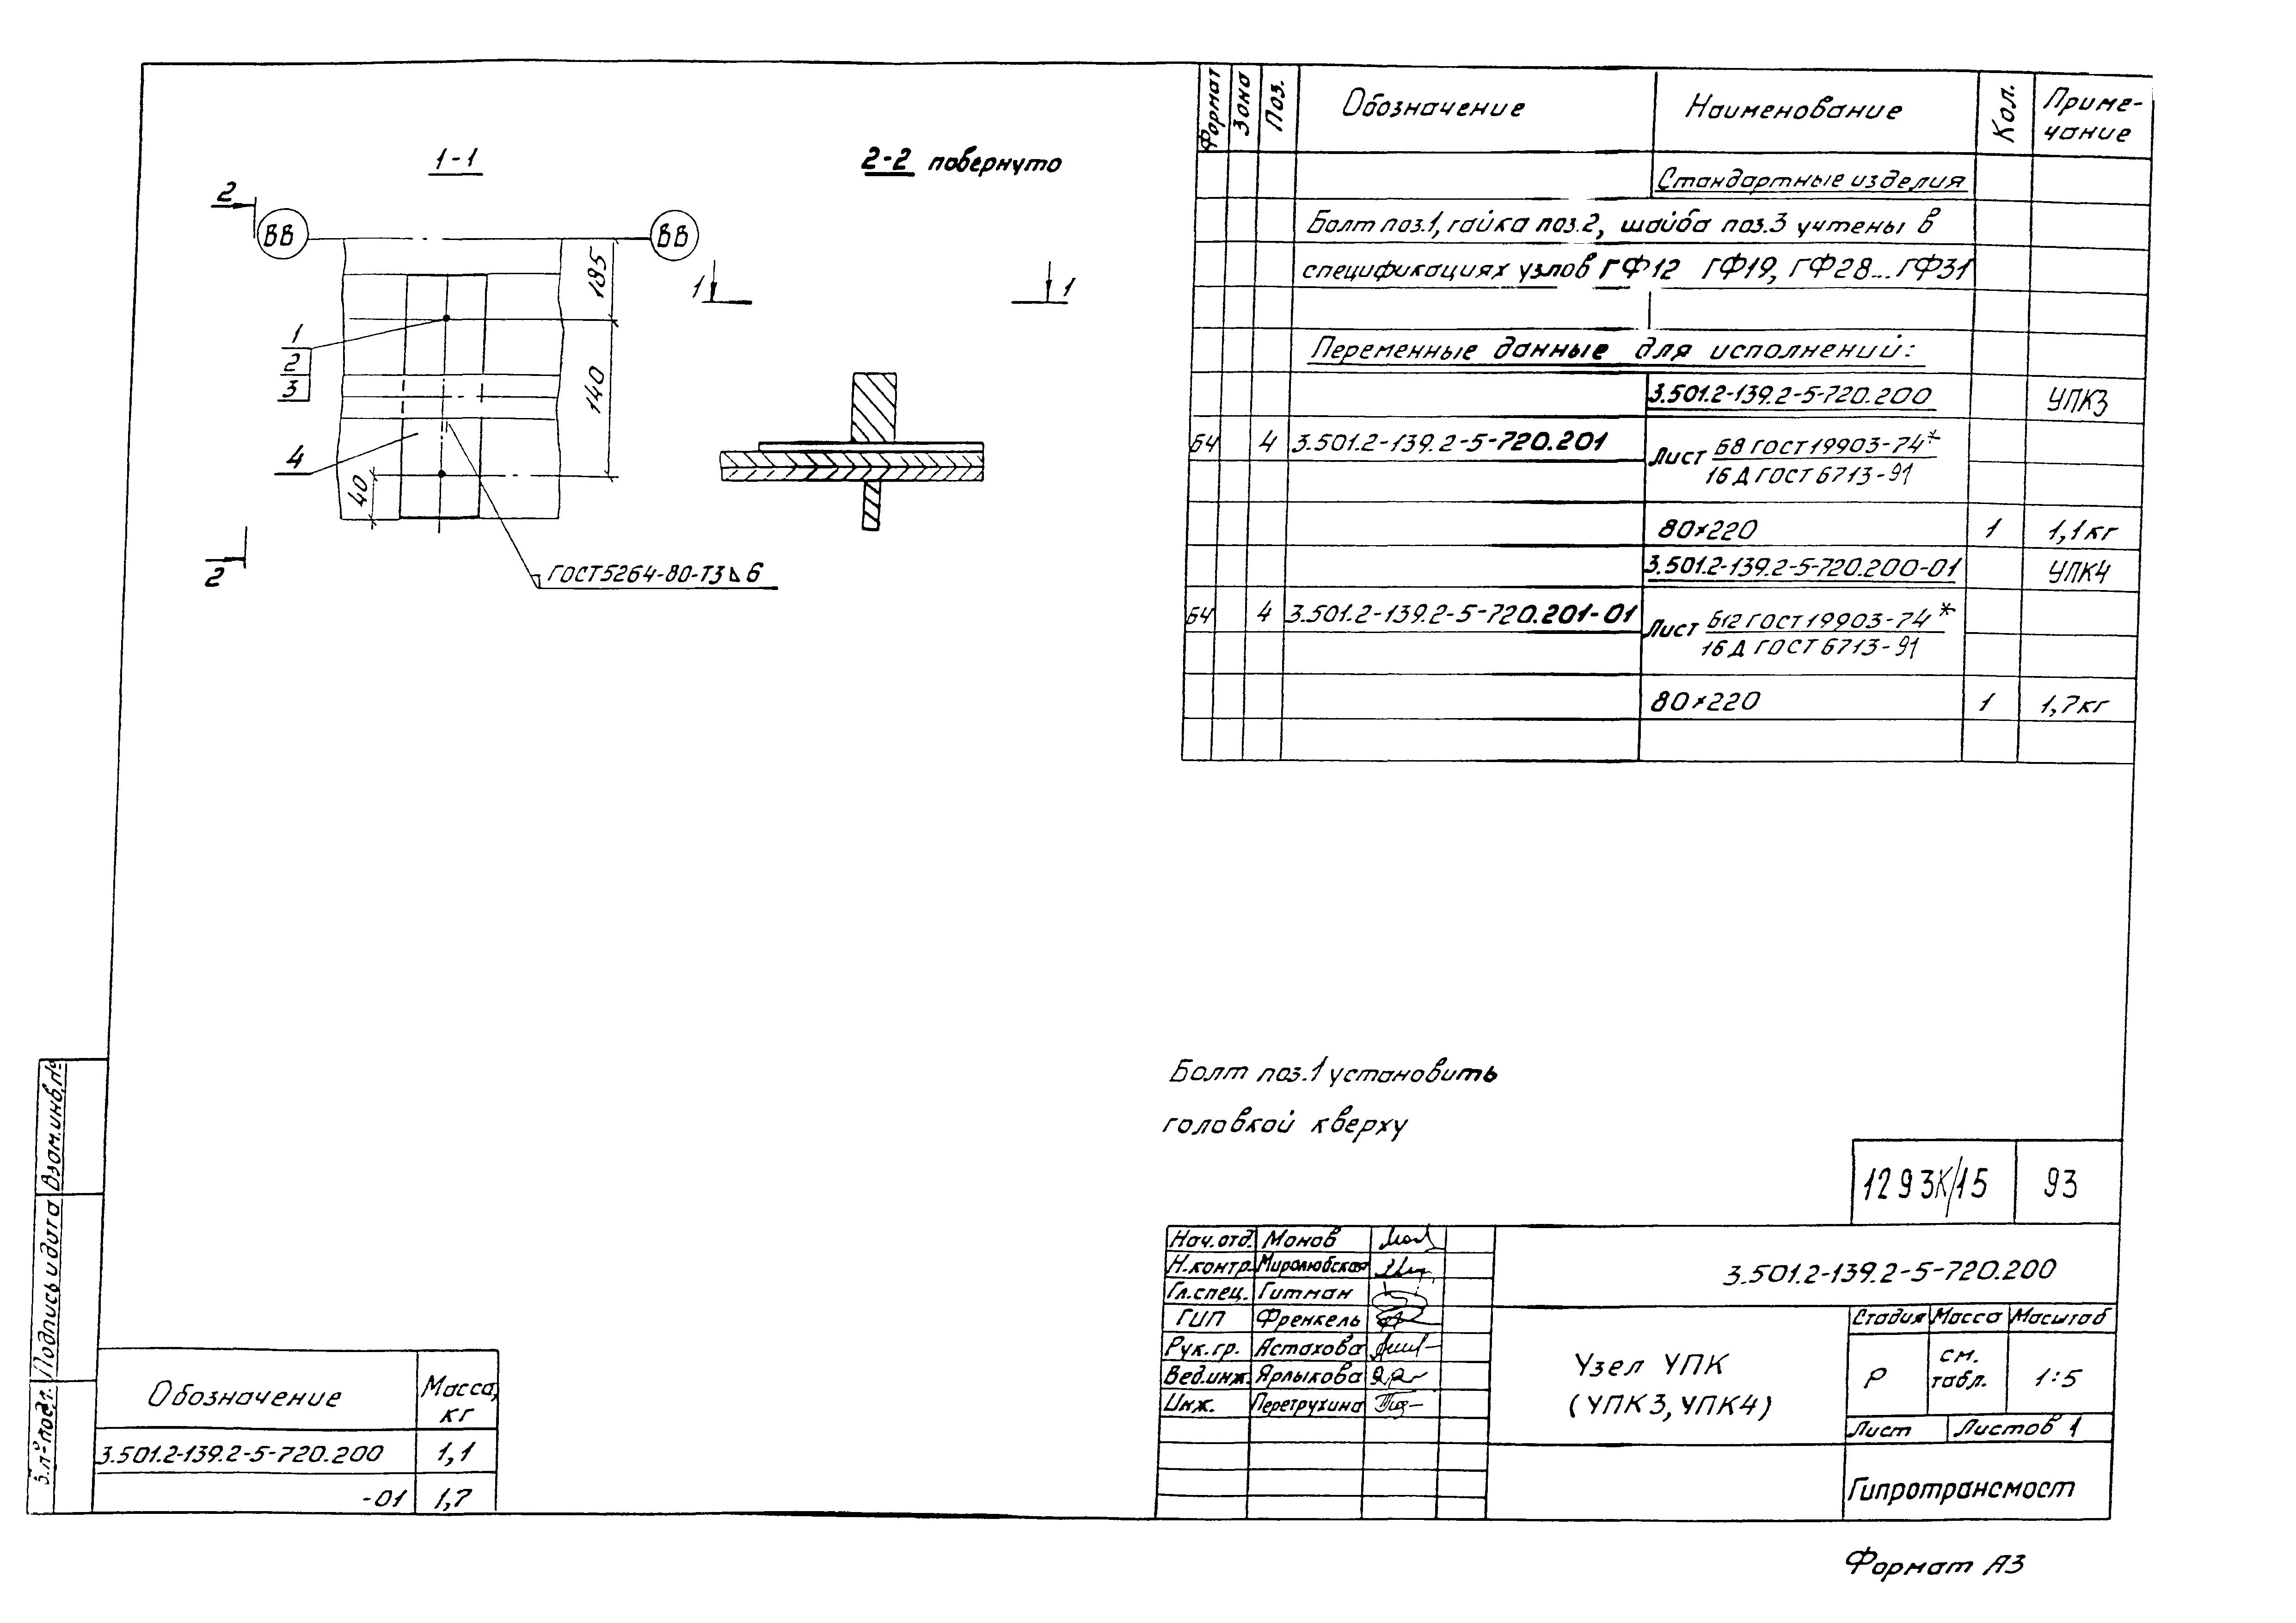 1-1
2-2 повернуто
2
ВВ
ВВ
185
1
1
1
2
3
140
4
40
2
ГОСТ 5264-80-Т3 ⊿ 6
Формат
Зона
Поз.
Обозначение
Наименование
Кол.
Приме-
чание
Стандартные изделия
Болт поз.1, гайка поз.2, шайба поз.3 учтены в
спецификациях узлов ГФ12 ГФ19, ГФ28...ГФ31
Переменные данные для исполнений:
3.501.2-139.2-5-720.200 УПК3
Б4 4 3.501.2-139.2-5-720.201 Лист Б8 ГОСТ 19903-74*
16Д ГОСТ 6713-91
80×220 1 1,1кг
3.501.2-139.2-5-720.200-01 УПК4
Б4 4 3.501.2-139.2-5-720.201-01 Лист Б12 ГОСТ 19903-74*
16Д ГОСТ 6713-91
80×220 1 1,7кг
Болт поз.1 установить
головкой кверху
1293К/15 93
Нач.отд. Монов
Н.контр. Миролюбская
Гл.спец. Гитман
ГИП Френкель
Рук.гр. Астахова
Вед.инж. Ярлыкова
Инж. Перетрухина
3.501.2-139.2-5-720.200
Узел УПК
(УПК3, УПК4)
Стадия Масса Масштаб
Р см.
табл. 1:5
Лист Листов 1
Гипротрансмост
Формат А3
Взам.инв.№
Подпись и дата
№ подл.
Обозначение Масса,
кг
3.501.2-139.2-5-720.200 1,1
-01 1,7